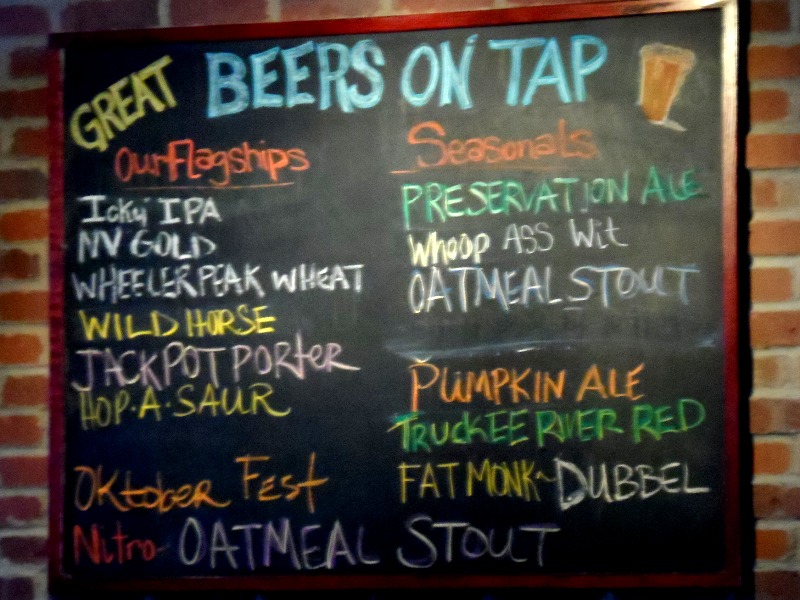 GREAT BEERS ON TAP
Our Flagships
Icky IPA
NV GOLD
WHEELER PEAK WHEAT
WILD HORSE
JACKPOT PORTER
HOP·A·SAUR
OKtober Fest
Nitro OATMEAL STOUT
Seasonals
PRESERVATION ALE
Whoop ASS Wit
OATMEAL STOUT
PUMPKIN ALE
TRUCKEE RIVER RED
FAT MONK~DUBBEL